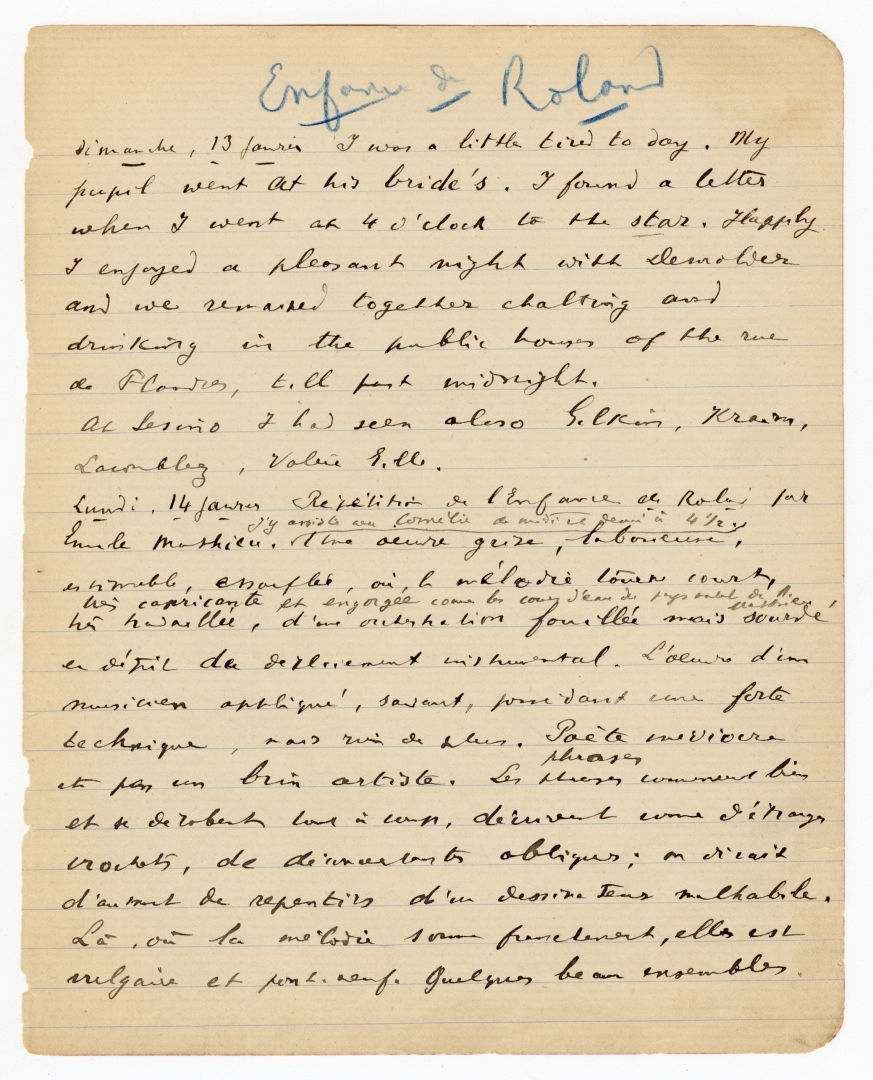 Enfance de Roland
dimanche, 13 janvier I was a little tired to day. My
pupil went at his bride's. I found a letter
when I went at 4 o'clock to the star. Happily
I enjoyed a pleasant night with Demolder
and we remained together chatting and
drinking in the public houses of the rue
de Flandres, till past midnight.
At Sesino I had seen also Gilkin, Krains,
Lacomblez, Valère Gille.
Lundi, 14 janvier Répétition de l'Enfance de Roland par
j'y assiste avec Cornélie de midi et demi à 4 1/2
Emile Mathieu. Une oeuvre grise, laborieuse,
estimable, essouflée, où la mélodie tourne court,
très capricante et engorgée comme les cours d'eau du pays natal de M. Mathieu
très travaillée, d'une orchestration fouillée mais sourde
en dépit du déploiement instrumental. L'oeuvre d'un
musicien appliqué, savant, possédant une forte
technique, mais rien de plus. Poète médiocre
phrases
et pas un brin artiste. Les phrases commencent bien
et se dérobent tout à coup, décrivent comme d'étranges
crochets, de déconcertants obliques; on dirait
d'autant de repentirs d'un dessinateur malhabile.
Là, où la mélodie sonne franchement, elle est
vulgaire et pont-neuf. Quelques beaux ensembles.